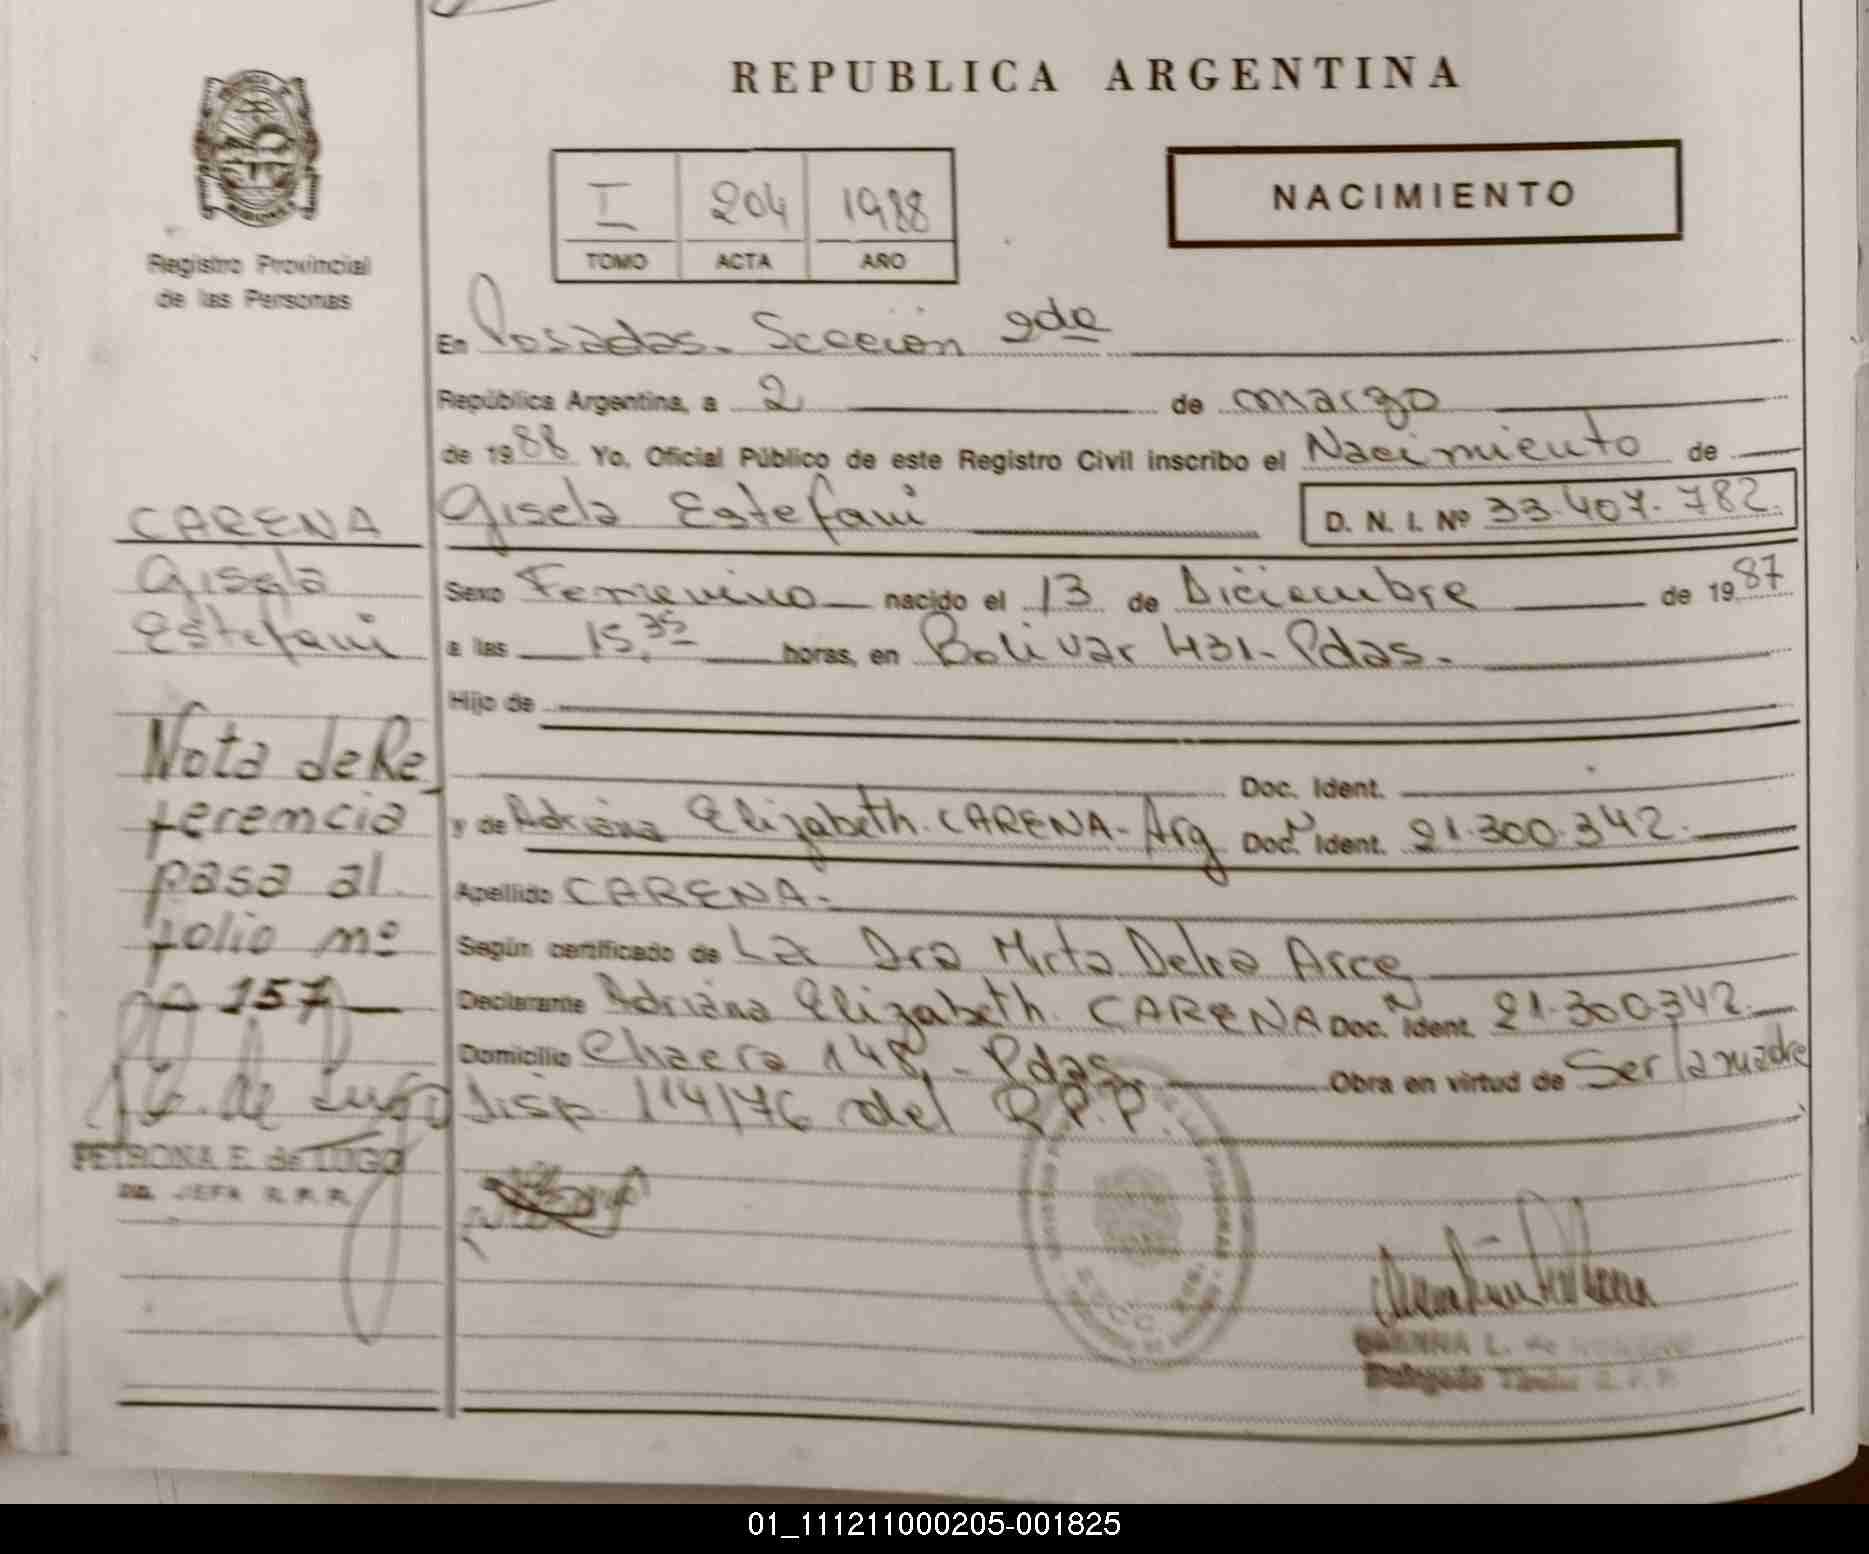 REPUBLICA ARGENTINA
Registro Provincial
de las Personas
I 204 1988
TOMO ACTA AÑO
NACIMIENTO
En Posadas. Sección 2da
República Argentina, a 2 de marzo
de 1988 Yo, Oficial Público de este Registro Civil inscribo el Nacimiento de
Gisela Estefani D. N. I. Nº 33.407.782.
Sexo Femenino nacido el 13 de Diciembre de 1987
a las 15,35 horas, en Bolivar 431- Pdas.
Hijo de
Doc. Ident.
y de Adriana Elizabeth. CARENA- Arg Doc. N Ident. 21.300.342.
Apellido CARENA.
Según certificado de La Dra Mirta Arce
Declarante Adriana Elizabeth. CARENA Doc. N Ident. 21.300.342.
Domicilio Chacra 148 - Pdas. Obra en virtud de Ser la madre
Disp. 114/76 del R.P.P.
CARENA
Gisela
Estefani
Nota de Re-
ferencia
pasa al
folio nº
157
PETRONA E. de LUGO
JEFA R. P. P.
L. de
Delegado Titular R. P. P.
01_111211000205-001825